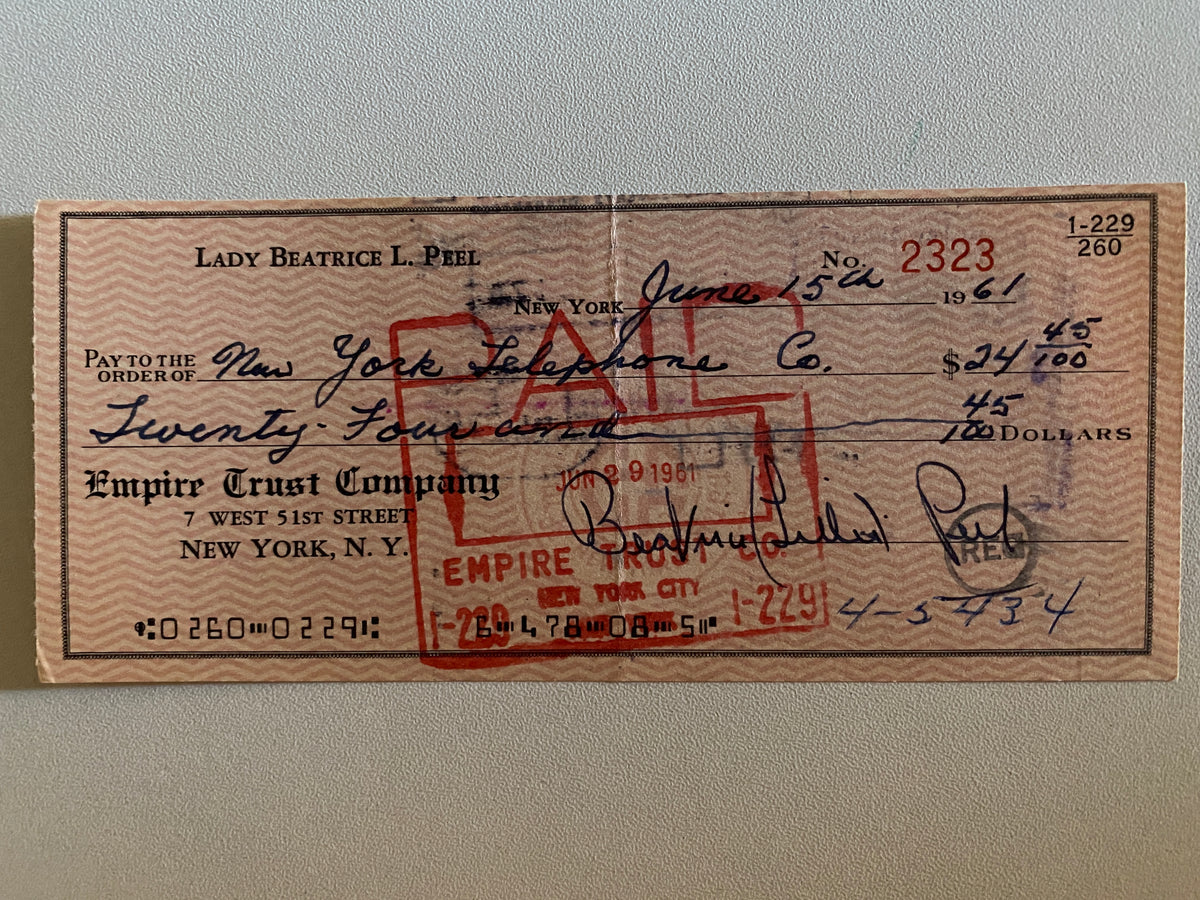 1-229
260
LADY BEATRICE L. PEEL
No. 2323
NEW YORK June 15th 1961
PAY TO THE ORDER OF New York Telephone Co. $24 45/100
Twenty-Four and 45/100 DOLLARS
PAID
Empire Trust Company
JUN 29 1961
7 WEST 51ST STREET
NEW YORK, N. Y.
Beatrice Lillie Peel
REG
EMPIRE TRUST CO
NEW YORK CITY
1-229 1-229
4-5434
⑆0260⑉0229⑆ 6⑉478⑉08⑉5⑈